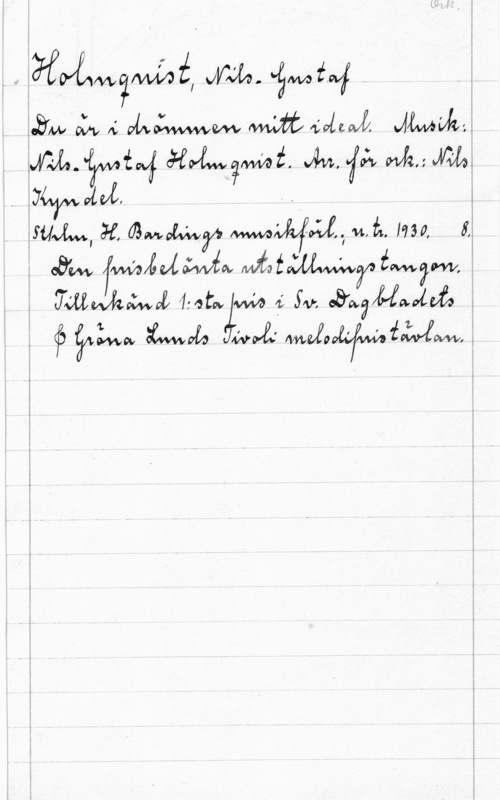 Ork.
Holmquist, Nils-Gustaf
Du är i drömmen mitt ideal. Musik:
Nils-Gustaf Holmquist. Arr. för ork.: Nils
Kyndel.
Sthlm, H. Bardings musikförl.; u. tr. 1930. 8.
Den prisbelönta utställningstangon.
Tillerkänd 1:sta pris i Sv. Dagbladets
& Gröna Lunds Tivoli melodipristävlan.